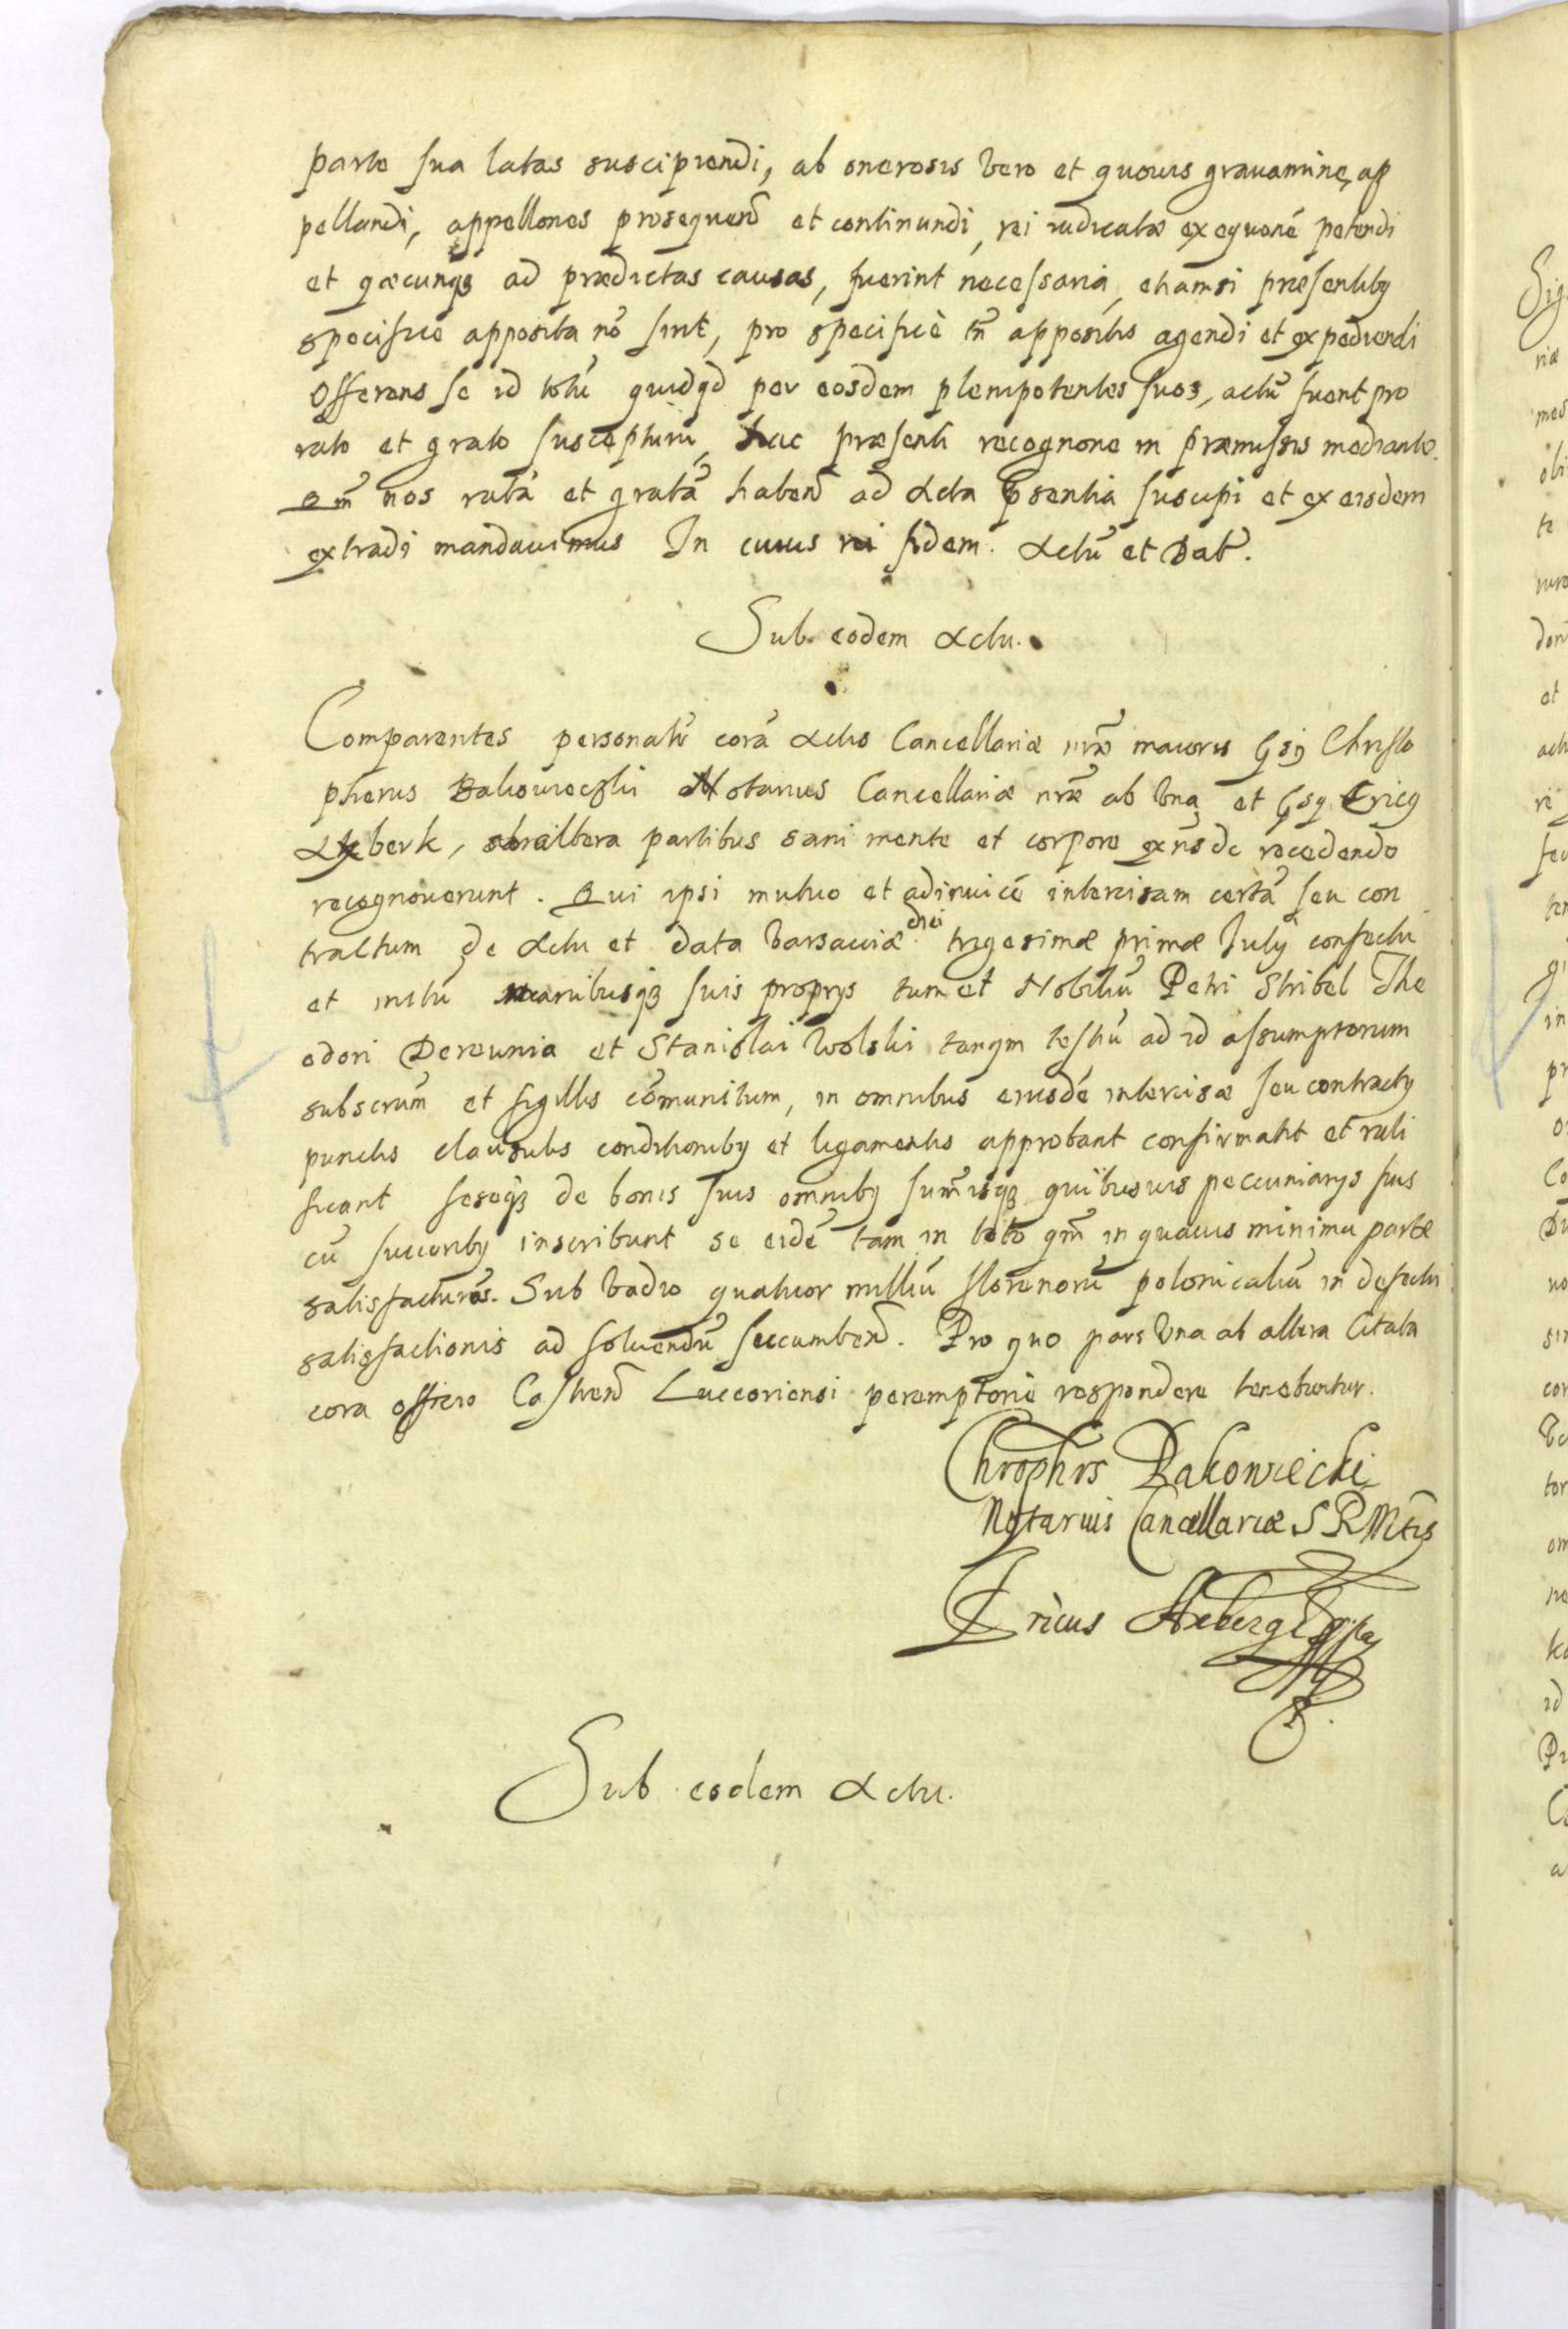 parte sua latas suscipiendi, ab onerosis vero et quovis gravamine, ap
pellandi, appellones prosequend et continuandi, rei iudicatæ exequoné petendi
et qæcunqȝ ad prædictas causas, fuerint necessaria, etiamsi præsentibȝ
specifice apposita nō sint, pro specificè tñ appositis agendi et expediendi
Offerens se id totū quidqd per eosdem plenipotentes suos, actū fuerit pro
rato et grato suscepturū, hac præsenti recognone in præmissis mediante.
Qm̃ nos ratā et gratā habend ad Acta psentia suscipi et ex eisdem
extradi mandavimus In cuius rei fidem. Actū et Dat.
Sub eodem Actu.
Comparentes personalr̃ corā Actis Cancellariæ nræ maioris Gsȝ Christo
pherus Bakowieczki Notarius Cancellariæ nræ ab Una et Gsȝ Ericȝ
berk, altera partibus sani mente et corpore exnsdē recedendo
recognoverunt. Qui ipsi mutuo et adinvicē intercisam certā seu con
tractum de Actu et data Varsaviæ diei trigesimæ primæ July confectū
et initū manibusqȝ suis proprys tum et Nobiliū Petri Stribel The
odori Dereunia et Stanislai Wolski tanqm testiū ad id assumptorum
subscrum̃ et sigillis cōmunitum, in omnibus eiusdē intercisæ seu contractȝ
punctis clausulis conditionibȝ et ligamentis approbant confirmant et rati
ficant seseqȝ de bonis suis omnibȝ sum̃isqȝ quibusvis pecuniarys suis
cū succoribȝ inscribunt se eidē tam in toto qm̃ in quavis minima parte
satisfacturos. Sub Vadio quatuor milliū florenorū polonicaliū in defectu
satisfactionis ad solvendū succumbend. Pro quo pars Una ab altera Citata
cora officio Castrend Luceoriensi peremptoriè respondere tenebuntur.
Chrophrs Bakowiecki
Notarius Cancellariæ S R Mtis
Ericus
Sub eodem Actu.